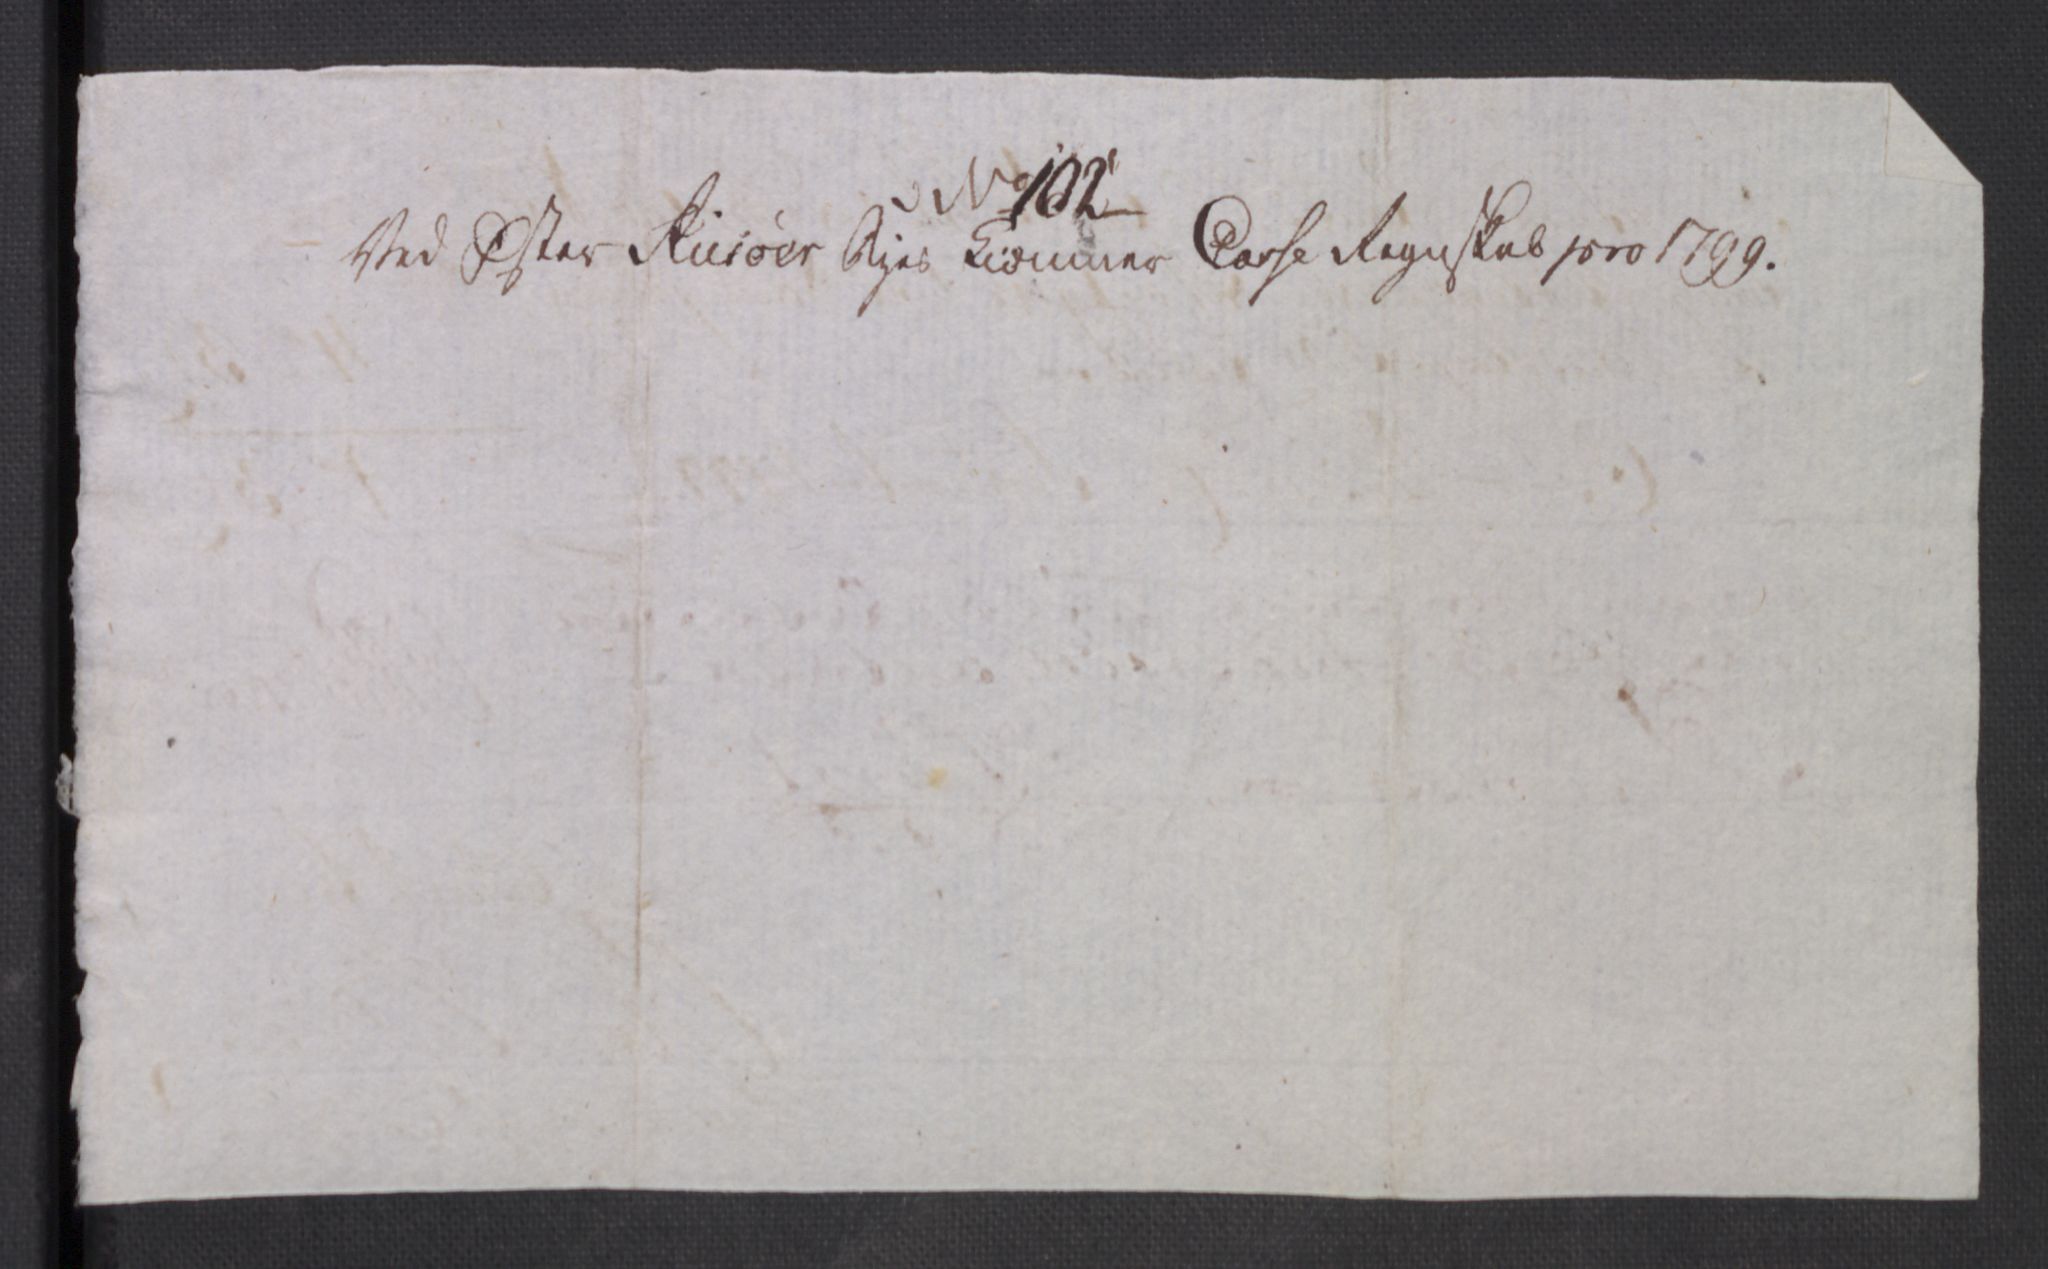 No 102
Ved Øster Riisöer Byes Kiæmner Casse Regnskab pro 1799.